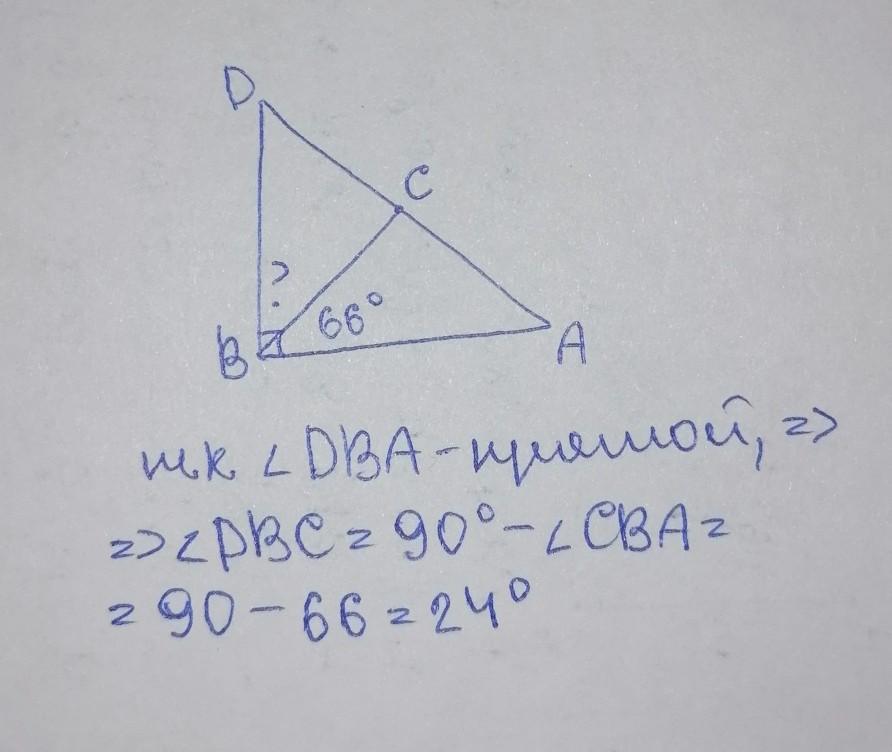 D
C
?
66°
B
A
тк ∠DBA - прямой, =>
=> ∠DBC = 90° - ∠CBA =
= 90 - 66 = 24°